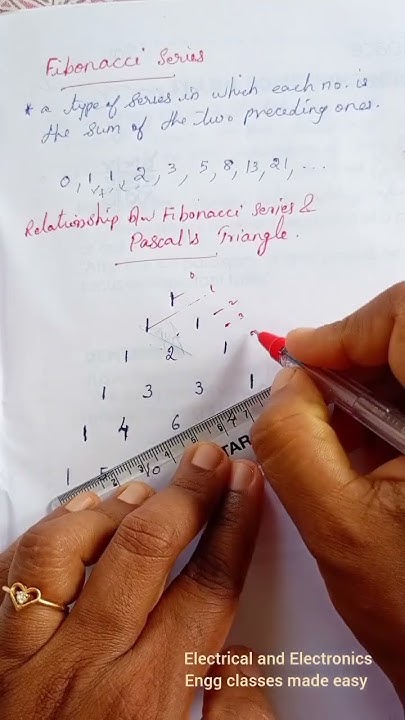 Fibonacci Series
* a type of series in which each no. is
the sum of the two preceding ones.
0, 1, 1, 2, 3, 5, 8, 13, 21, ...
Relationship b/w Fibonacci series &
Pascal's Triangle.
0
1 1
1 1 2
3
1 2 1
1 3 3 1
1 4 6
1 5 10
STAR
Electrical and Electronics
Engg classes made easy